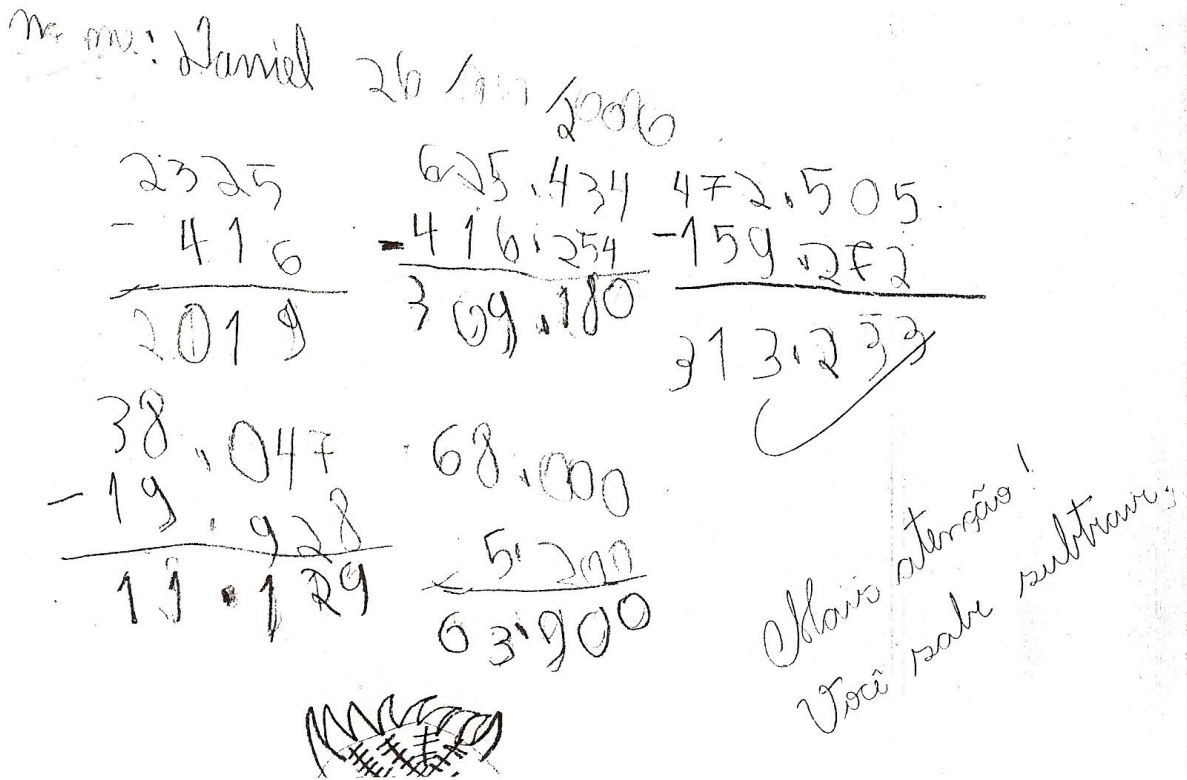 Nome: Daniel 26 / / 2006
2325
- 416
2019
625.434
- 416.254
309.180
472.505
- 159.272
313.233
38.047
- 19.928
11.129
68.000
- 5.200
63.900
Mais atenção!
Você sabe subtrair;